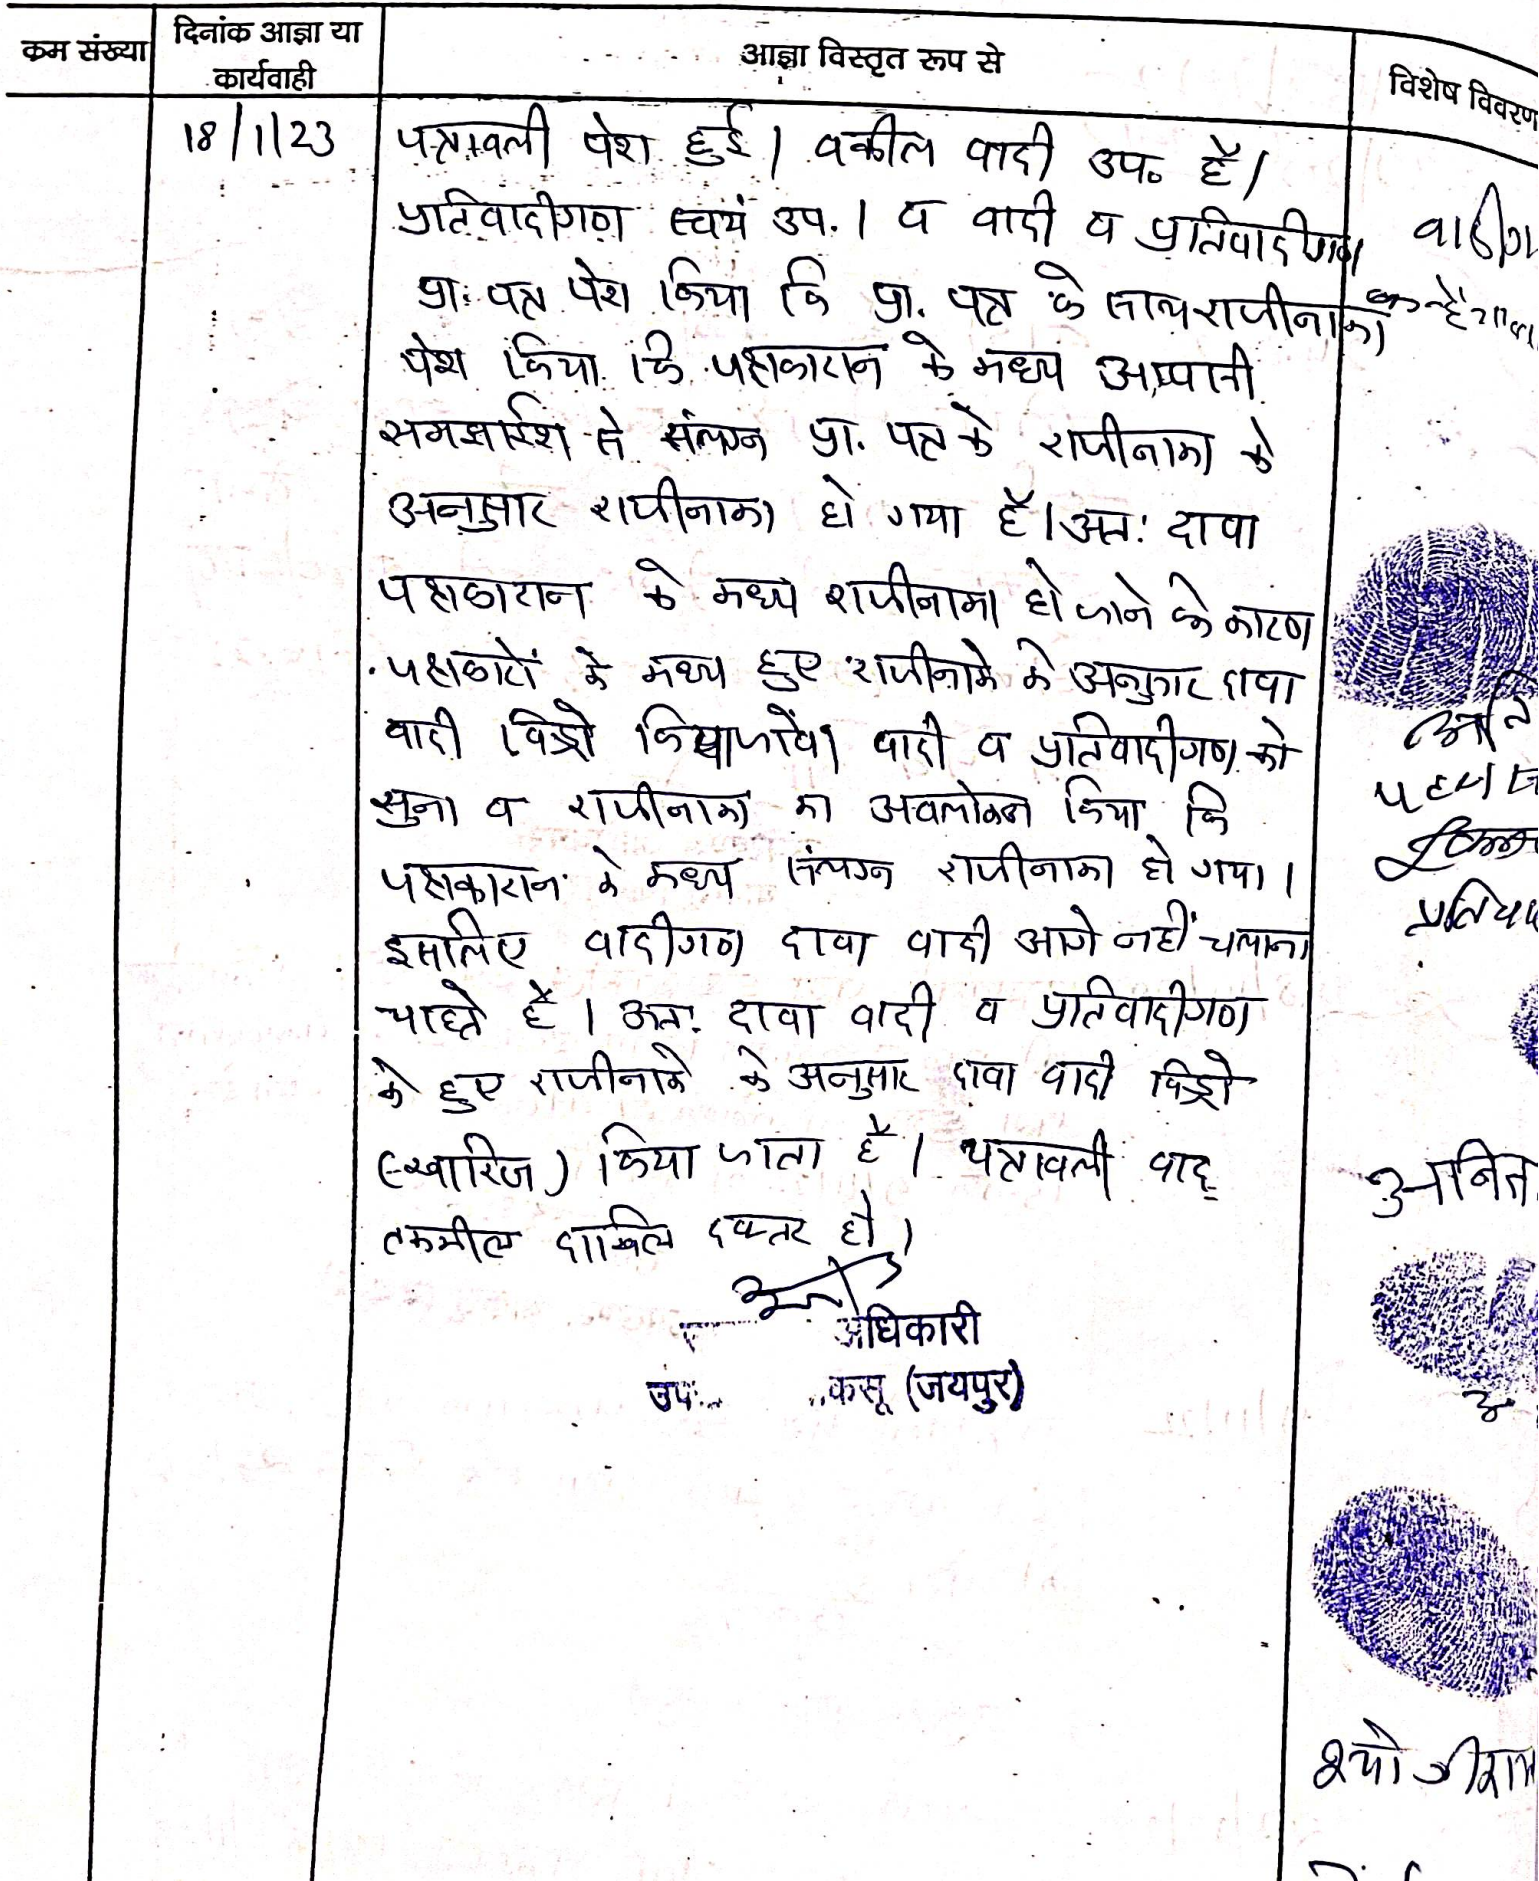 क्रम संख्या
दिनांक आज्ञा या
कार्यवाही
आज्ञा विस्तृत रूप से
विशेष विवरण
18/1/23
पत्रावली पेश हुई। वकील वादी उप. है।
प्रतिवादीगण स्वयं उप.। व वादी व प्रतिवादीगण
प्रा. पत्र पेश किया कि प्रा. पत्र के साथ राजीनामा
पेश किया कि पक्षकारान के मध्य आपसी
समझाईश से संलग्न प्रा. पत्र के राजीनामा के
अनुसार राजीनामा हो गया है। अत: दावा
पक्षकारान के मध्य राजीनामा हो जाने के कारण
पक्षकारों के मध्य हुए राजीनामे के अनुसार दावा
वादी विड्रो किया जावें। वादी व प्रतिवादीगण को
सुना व राजीनामा का अवलोकन किया कि
पक्षकारान के मध्य संलग्न राजीनामा हो गया।
इसलिए वादीगण दावा वादी आगे नहीं चलाना
चाहते है। अत: दावा वादी व प्रतिवादीगण
के हुए राजीनामे के अनुसार दावा वादी विड्रो
(खारिज) किया जाता है। पत्रावली वाद
तकमील दाखिल दफ्तर हो।
अधिकारी
उप कसू (जयपुर)